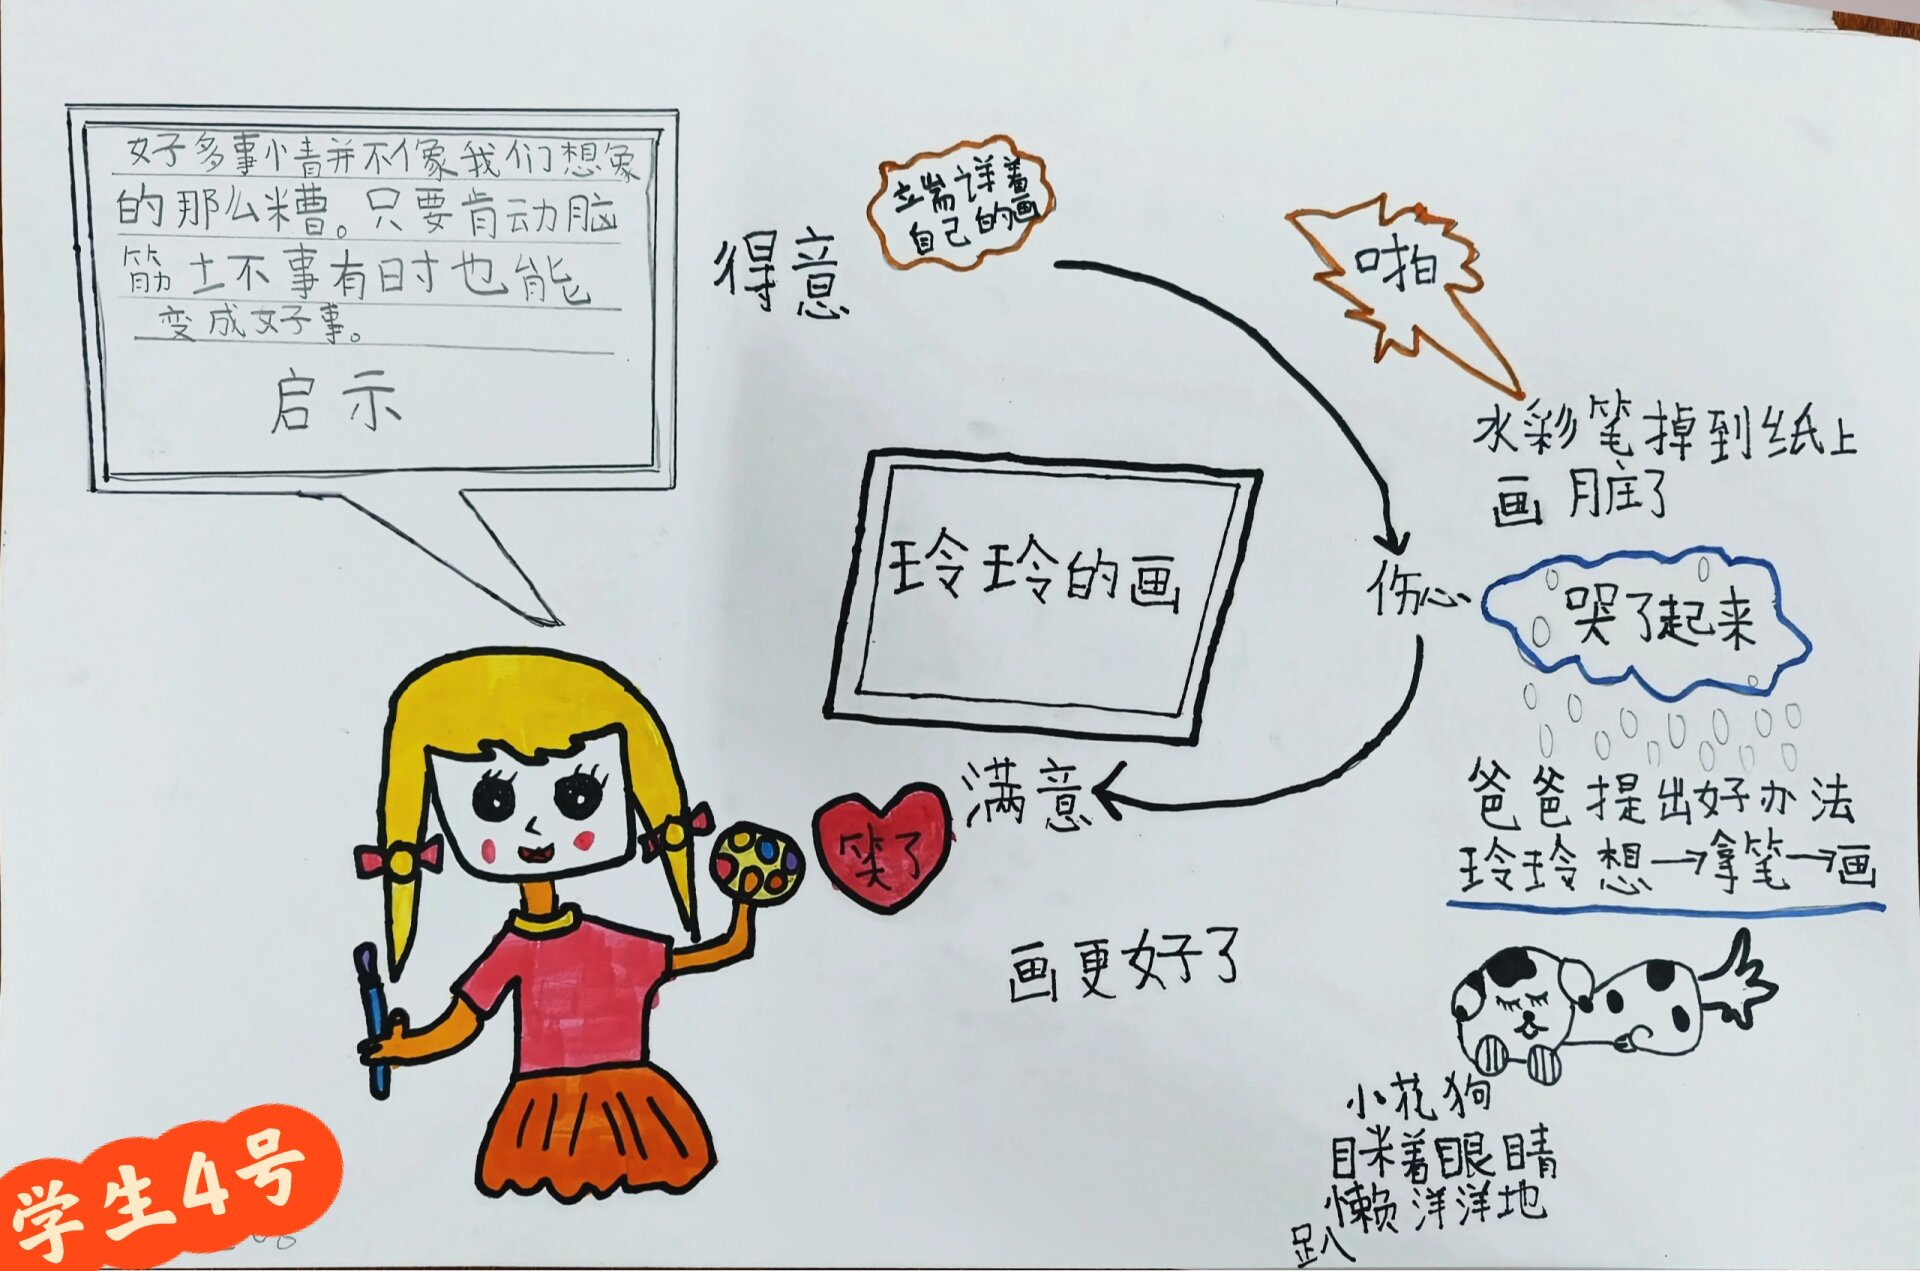 好多事情并不像我们想象
的那么糟。只要肯动脑
筋坏事有时也能
变成好事。
启示
得意
端详着
自己的画
啪
水彩笔掉到纸上
画脏了
玲玲的画
伤心
哭了起来
爸爸提出好办法
玲玲想→拿笔→画
满意
笑了
画更好了
小花狗
眯着眼睛
懒洋洋地
趴
学生4号